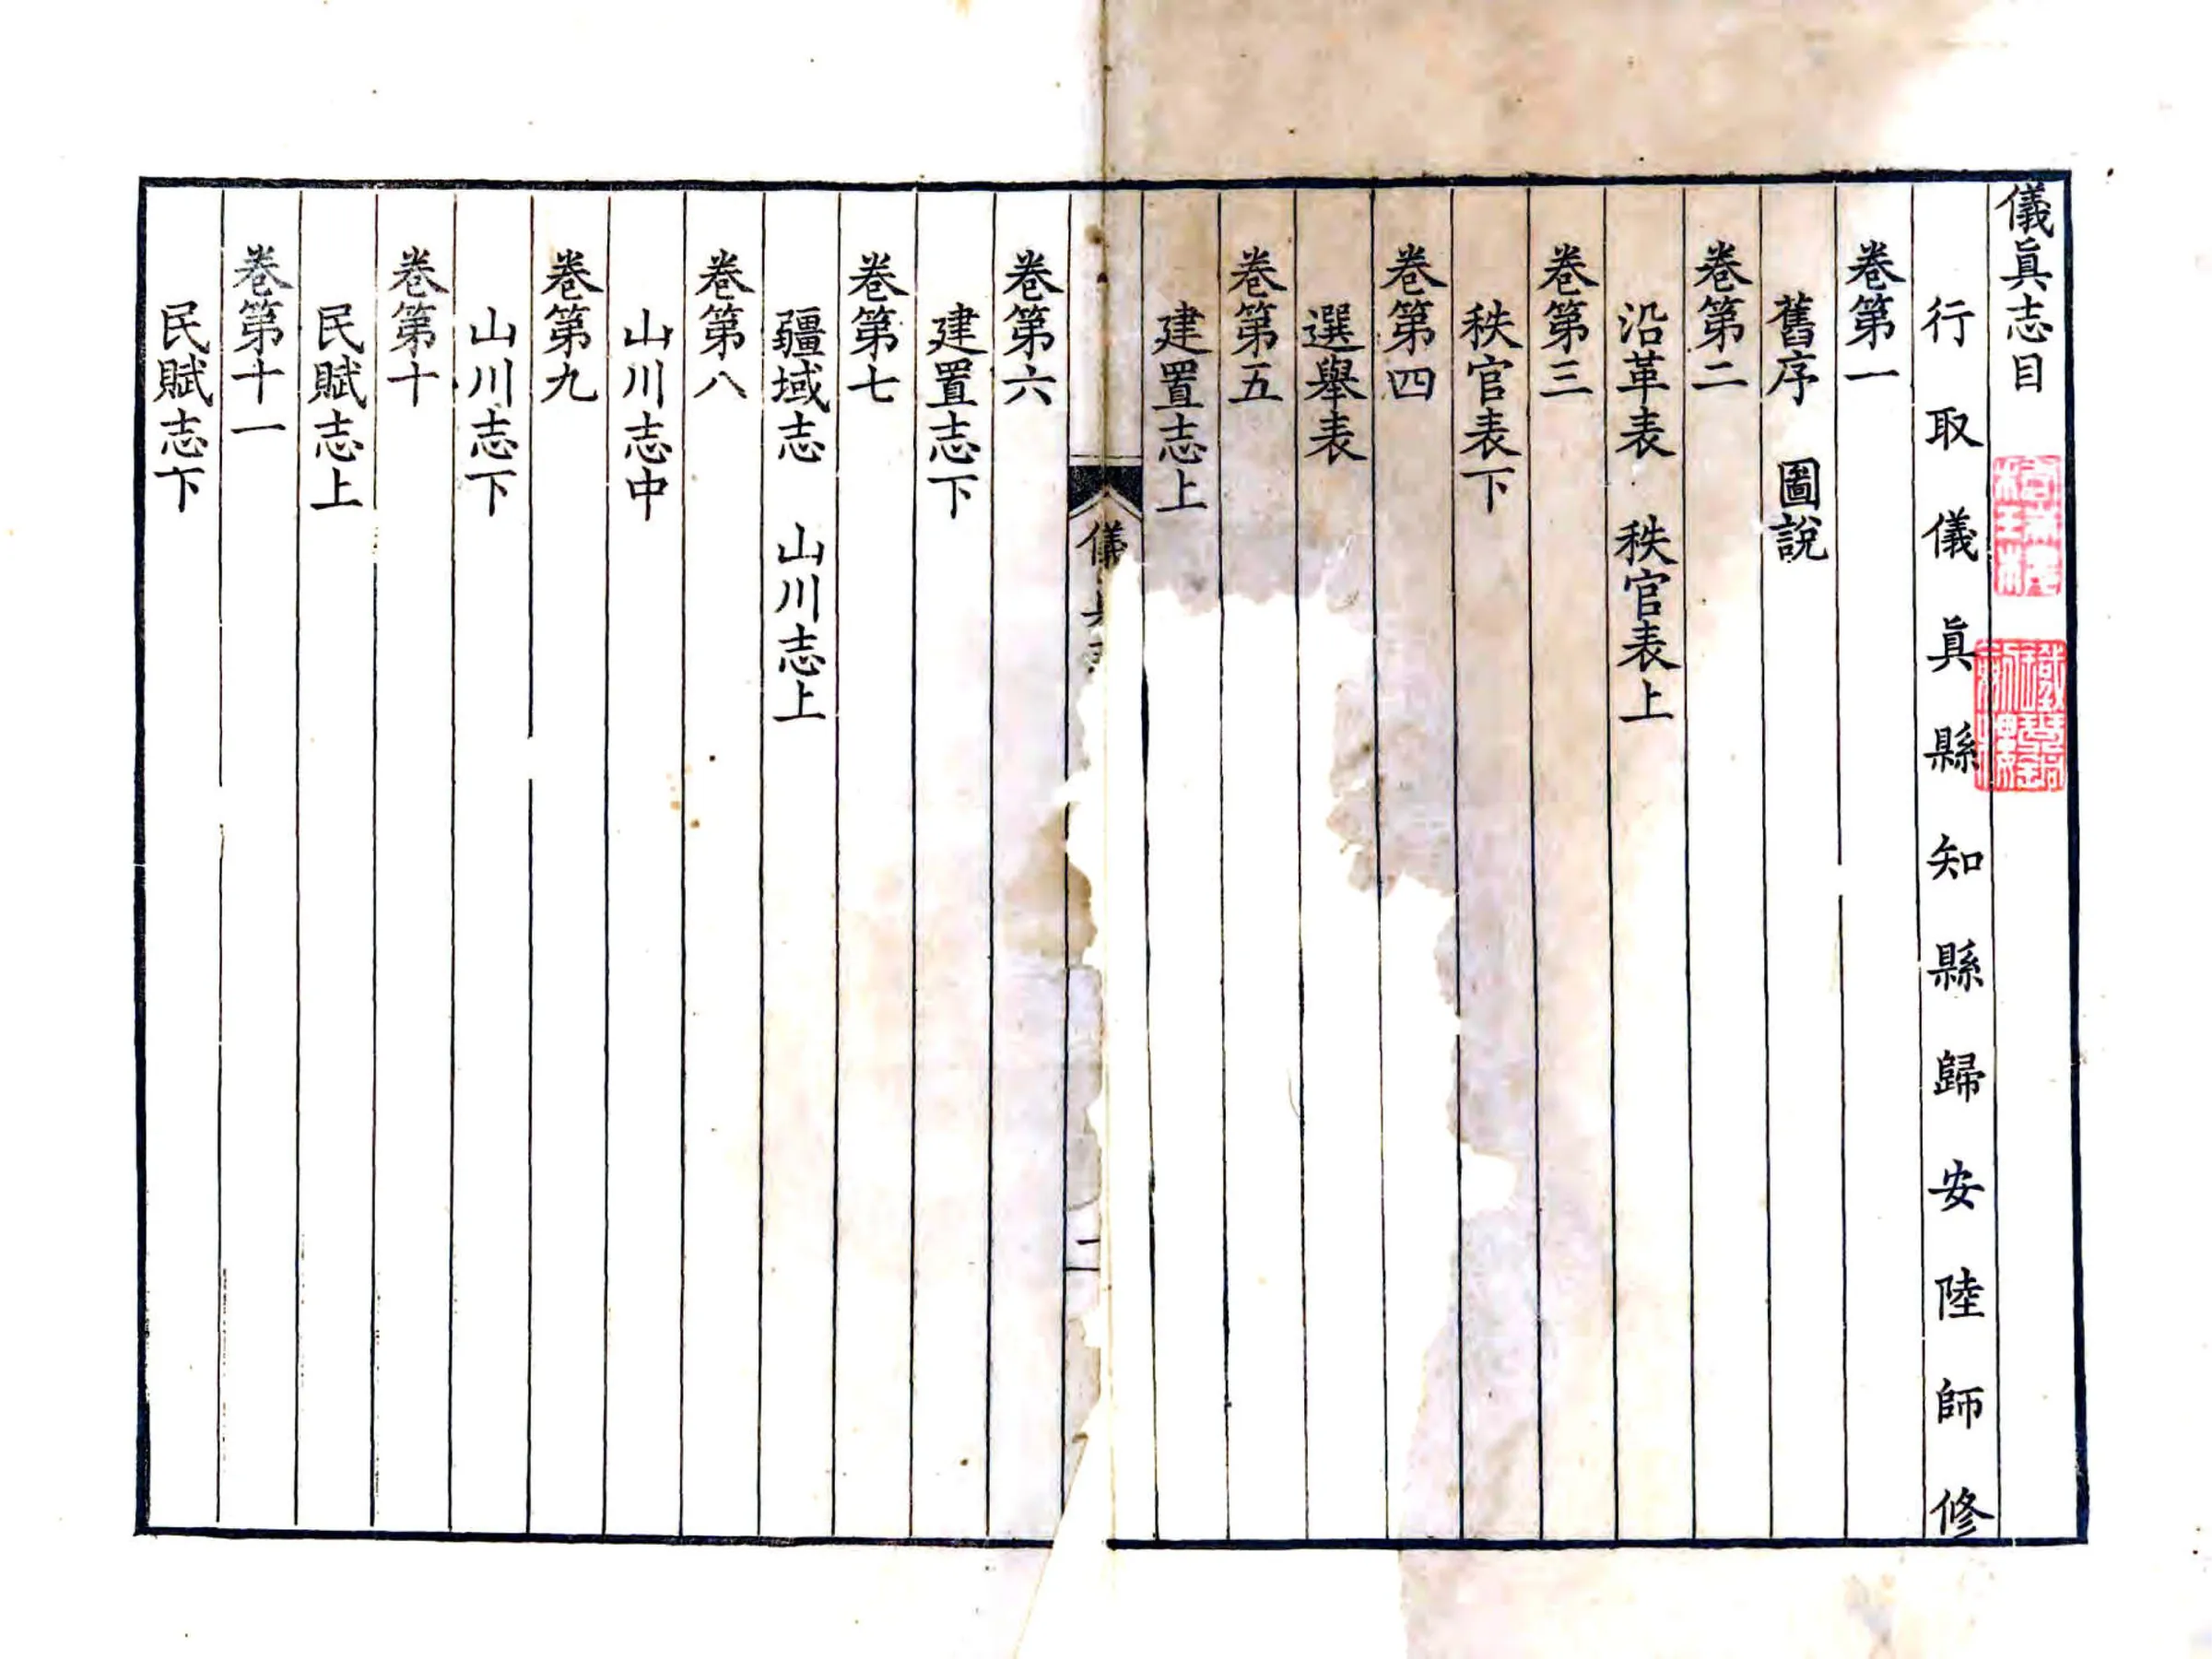 儀眞志目
行取儀眞縣知縣歸安陸師修
卷第一
舊序　圖說
卷第二
沿革表　秩官表上
卷第三
秩官表下
卷第四
選舉表
卷第五
建置志上
儀
卷第六
建置志下
卷第七
疆域志　山川志上
卷第八
山川志中
卷第九
山川志下
卷第十
民賦志上
卷第十一
民賦志下